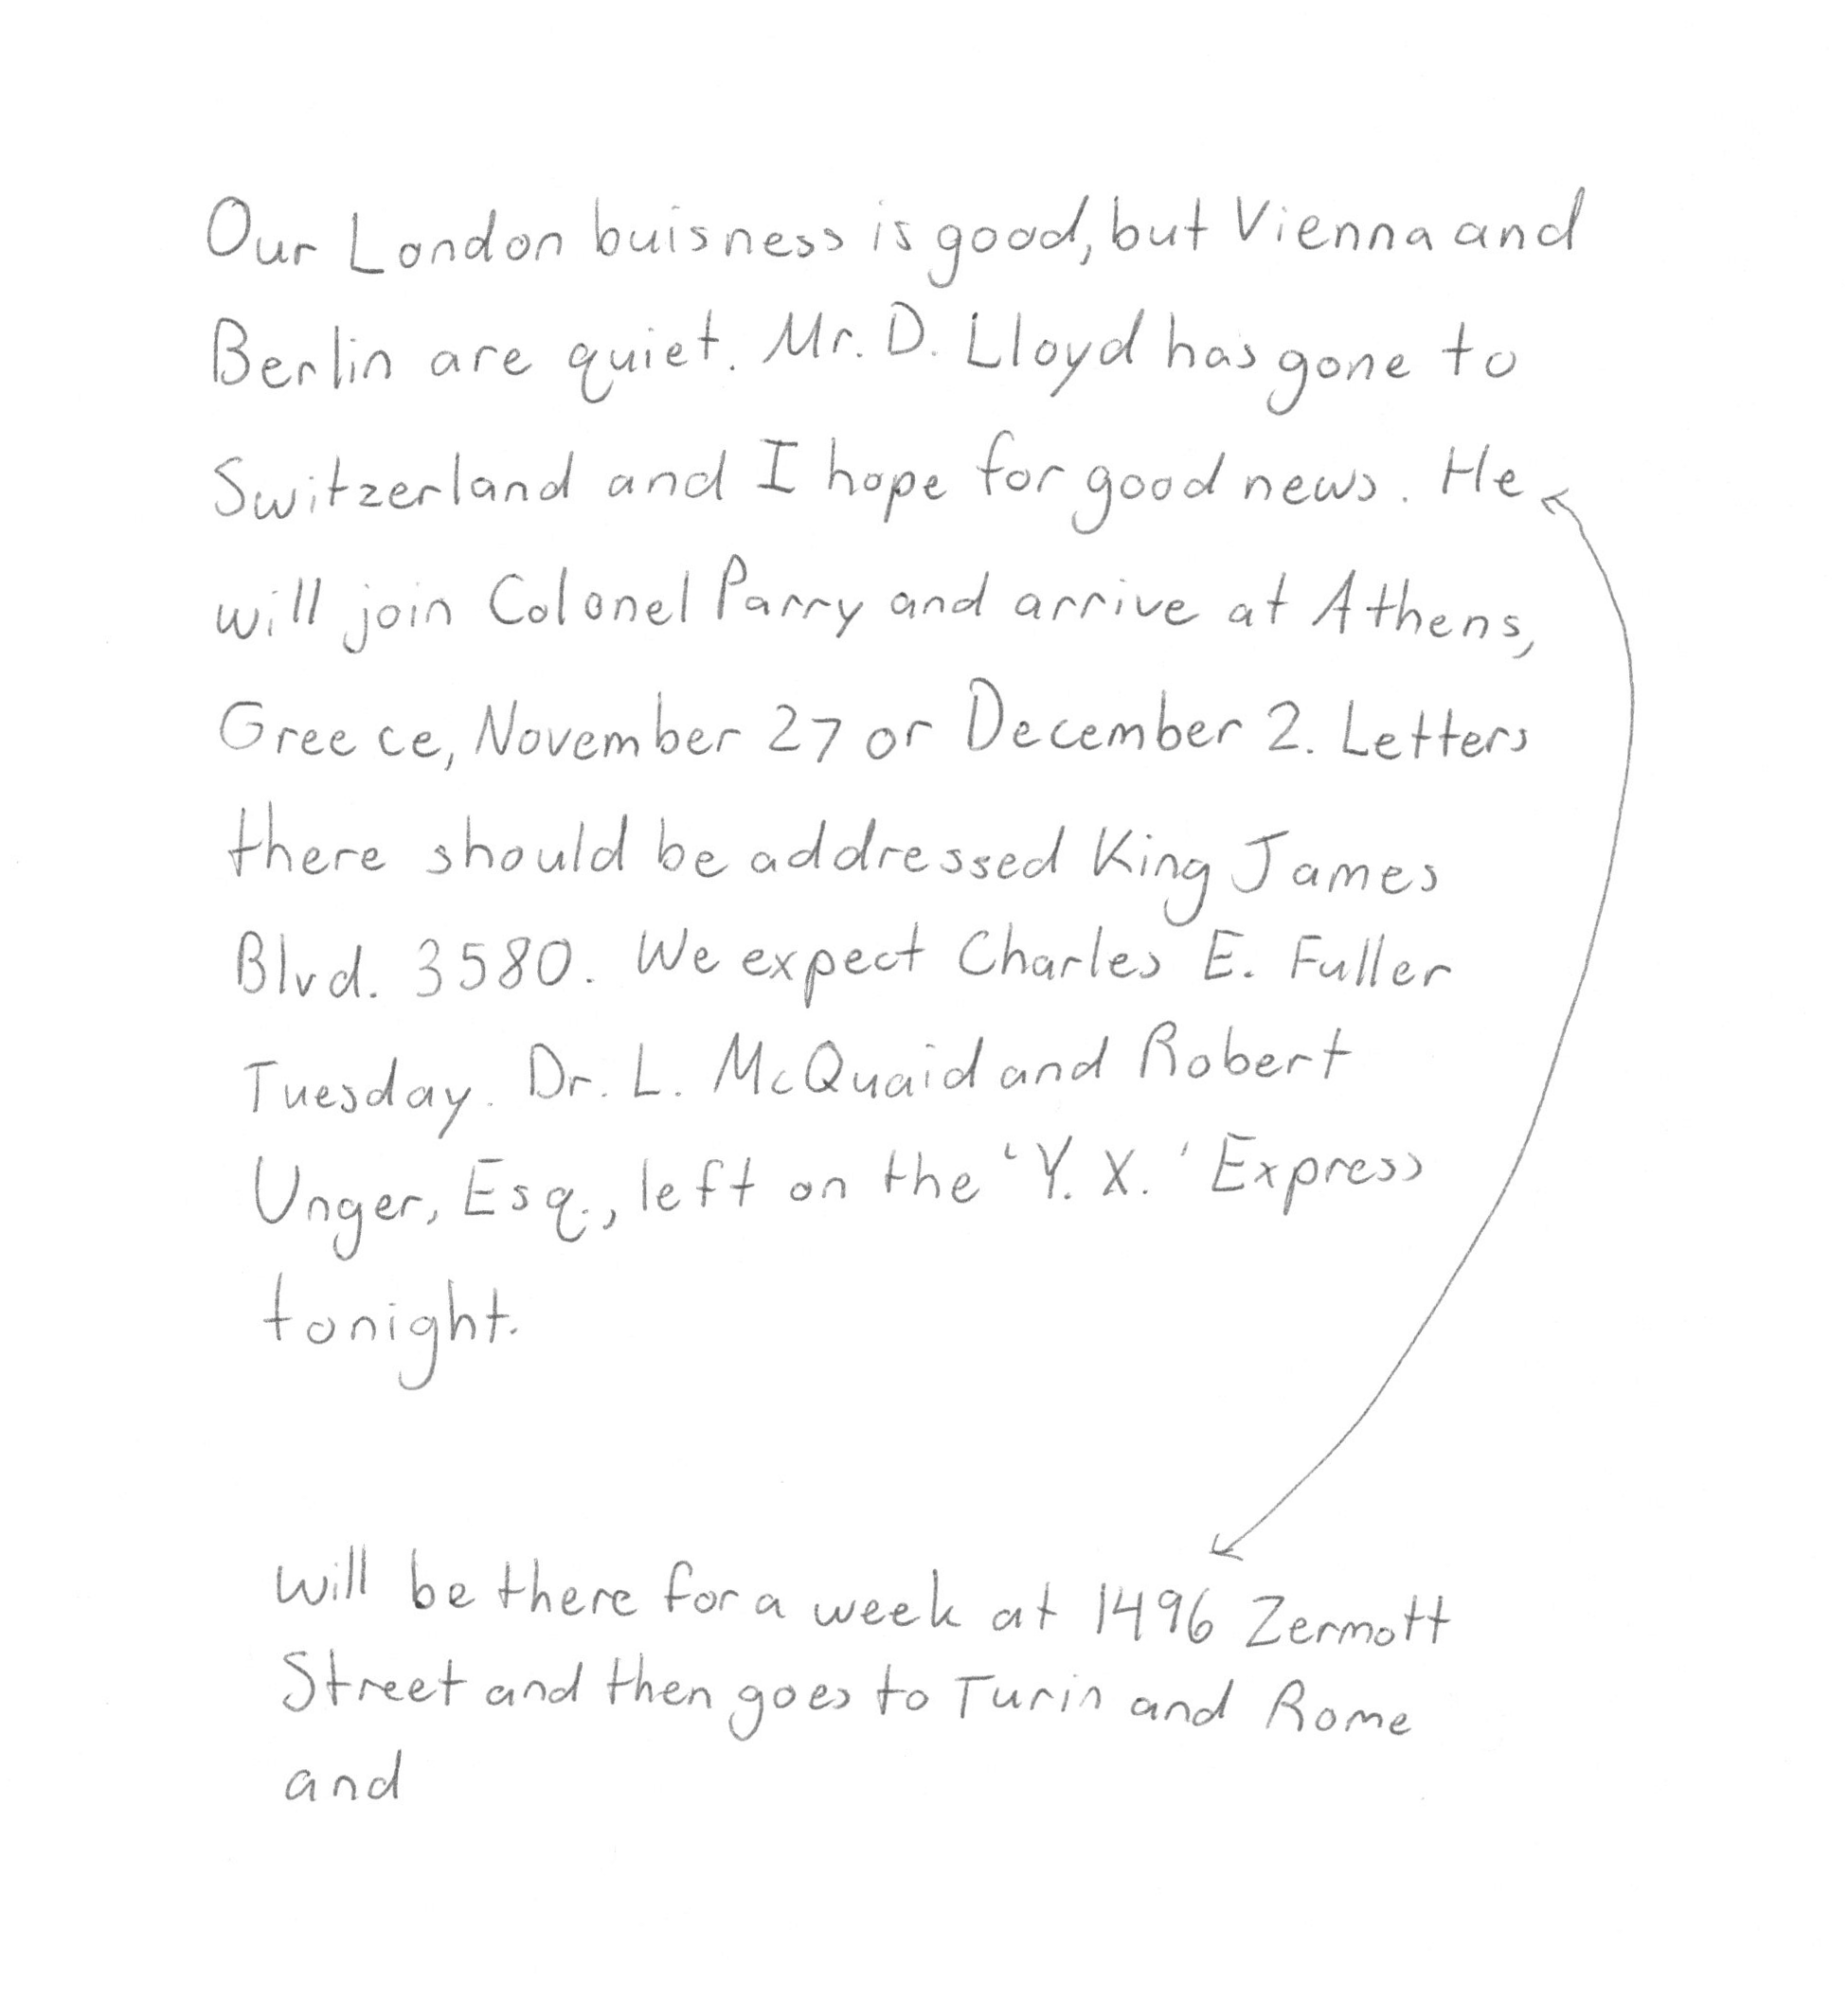 Our London buisness is good, but Vienna and
Berlin are quiet. Mr. D. Lloyd has gone to
Switzerland and I hope for good news. He
will join Colonel Parry and arrive at Athens,
Greece, November 27 or December 2. Letters
there should be addressed King James
Blvd. 3580. We expect Charles E. Fuller
Tuesday. Dr. L. McQuaid and Robert
Unger, Esq., left on the 'Y. X.' Express
tonight.
will be there for a week at 1496 Zermott
Street and then goes to Turin and Rome
and